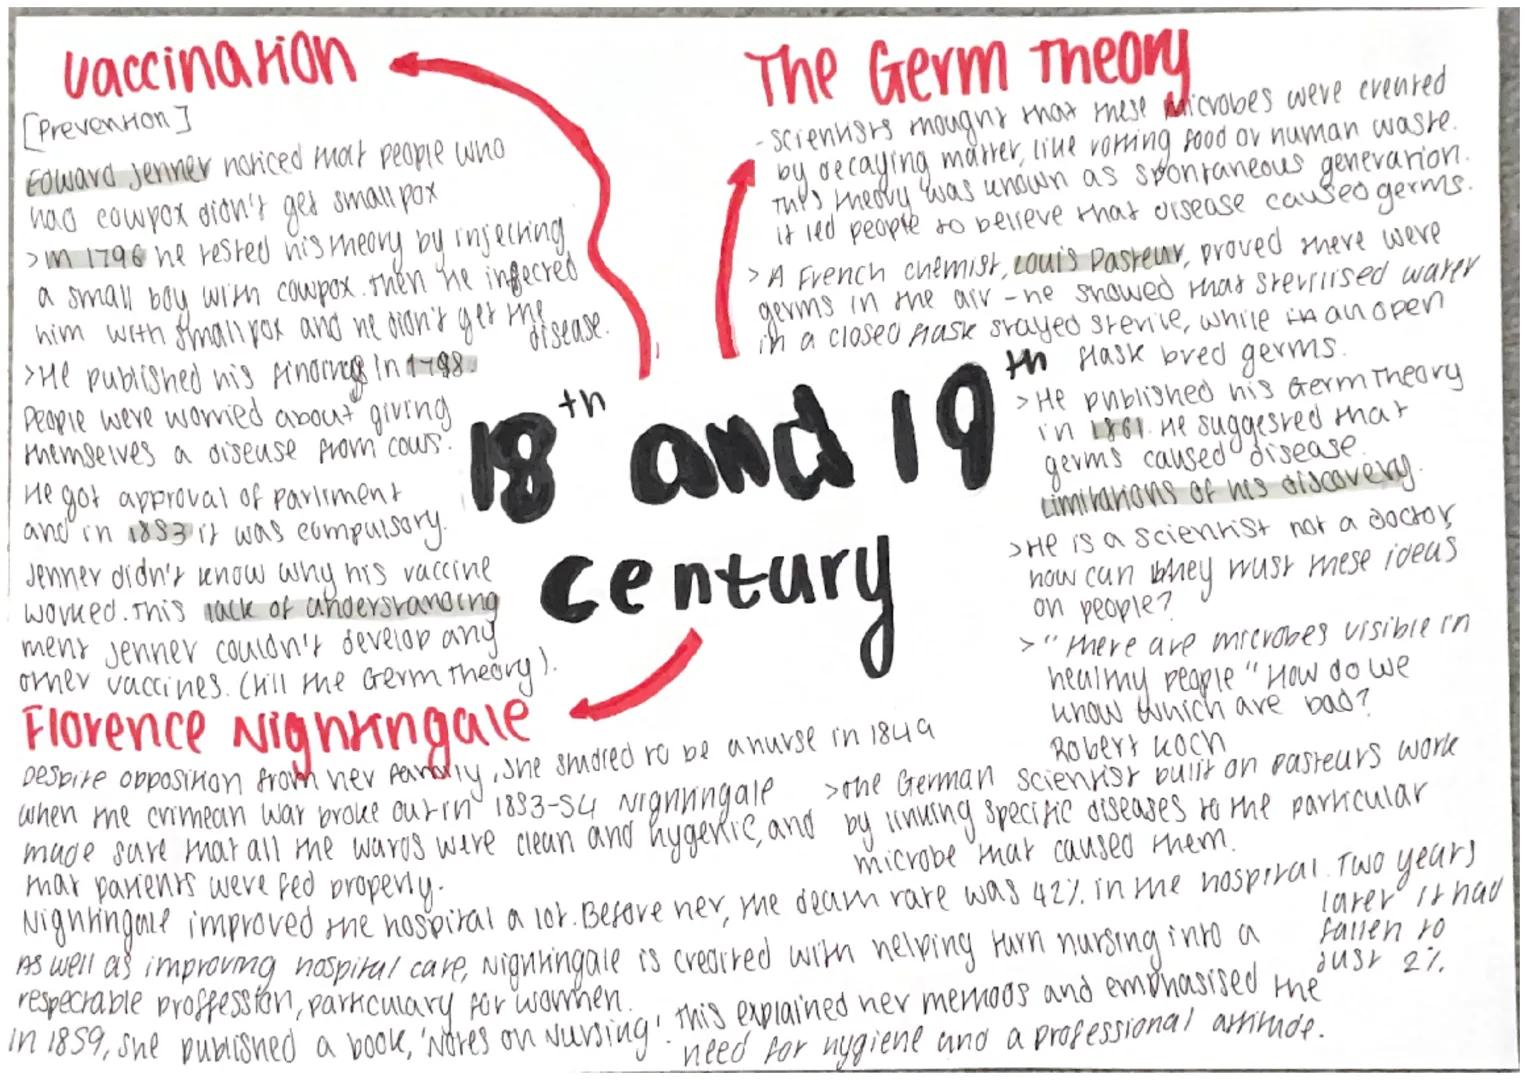 vaccination
[Prevention]
Edward Jenner noticed that people who
had cowpox didn't get smallpox
>in 1796 he tested his theory by injecting
a small boy with cowpox. then he infected
him with smallpox and he didn't get the
disease.
>He published his findings in 1798.
People were worried about giving
themselves a disease from cows.
He got approval of parliment
and in 1853 it was compulsory.
Jenner didn't know why his vaccine
worked. This lack of understanding
ment Jenner couldn't develop any
other vaccines. (till the Germ Theory).
The Germ Theory
- scientists thought that these microbes were created
by decaying matter, like rotting food or human waste.
This theory was known as spontaneous generation.
it led people to believe that disease caused germs.
> A French chemist, Louis Pasteur, proved there were
germs in the air - he showed that sterilised water
in a closed flask stayed sterile, while in an open
flask bred germs.
>He published his Germ Theory
in 1861. He suggested that
germs caused disease.
Limitations of his discovery.
>He is a scientist not a doctor,
how can they trust these ideas
on people?
> "there are microbes visible in
healthy people" How do we
know which are bad?
Robert Koch
>the German scientist built on pasteurs work
by linking specific diseases to the particular
microbe that caused them.
18th and 19th
century
Florence Nightingale
Despite opposition from her family, she studied to be a nurse in 1849
when the crimean war broke out in 1853-54 Nightingale
made sure that all the wards were clean and hygenic, and
that patients were fed properly.
Nightingale improved the hospital a lot. Before her, the death rate was 42% in the hospital. Two years
later it had
fallen to
just 2%.
As well as improving hospital care, Nightingale is credited with helping turn nursing into a
respectable proffession, particulary for women.
in 1859, she published a book, 'Notes on Nursing'. This explained her methods and emphasised the
need for hygiene and a professional attitude.